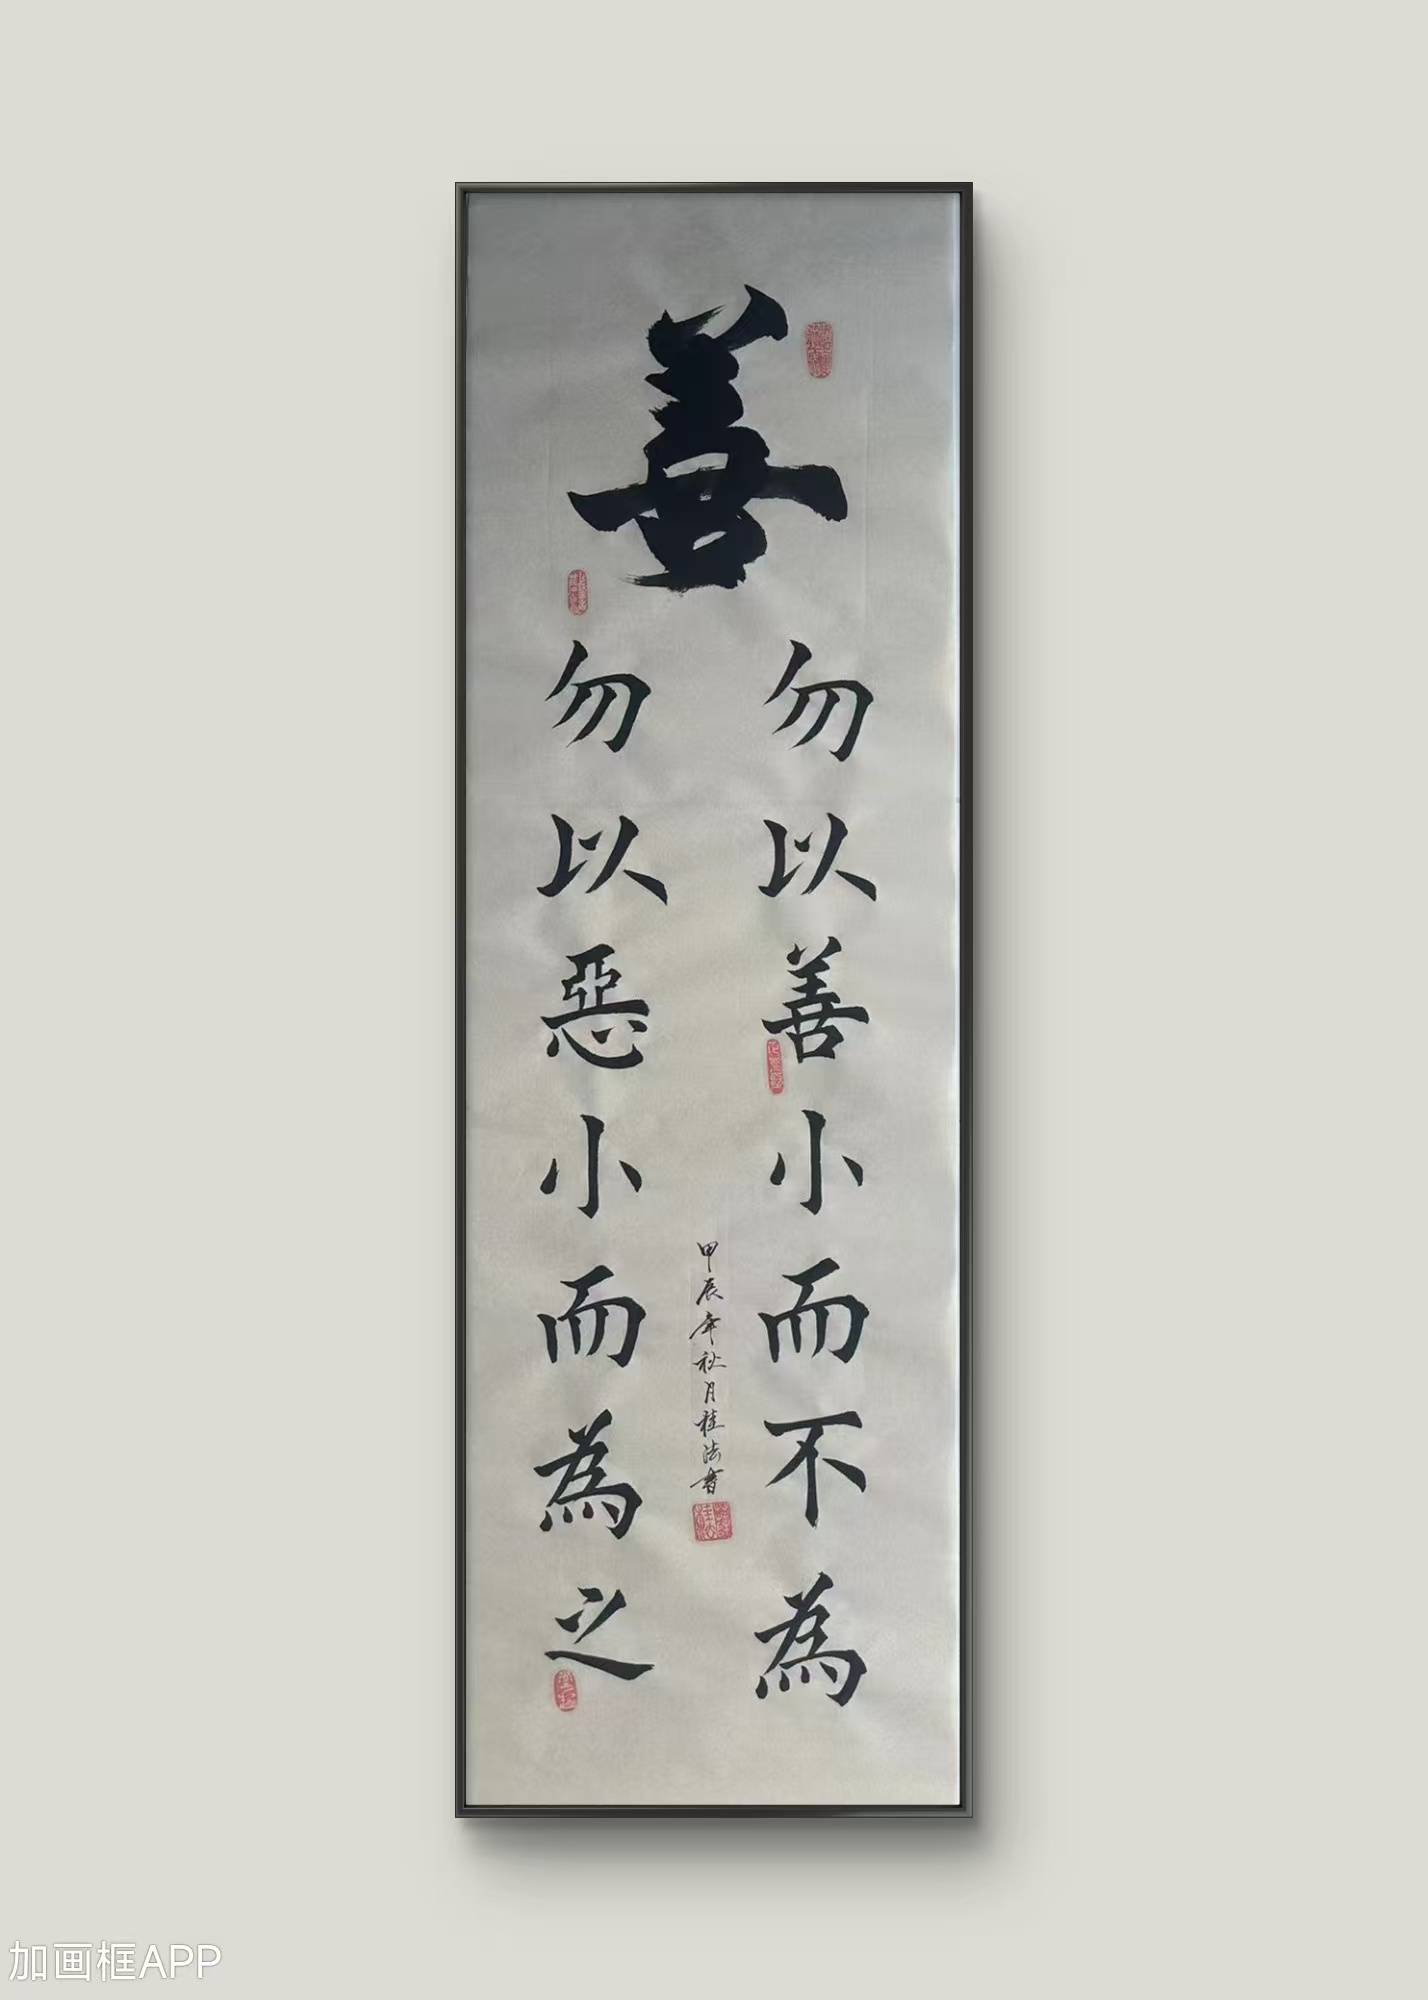 善
勿以善小而不為
勿以惡小而為之
甲辰年秋月桂法書
加画框APP